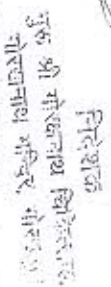 निदेशक
गुरु श्री गोरक्षनाथ चिकित्सालय
गोरखनाथ मन्दिर, गोरखपुर